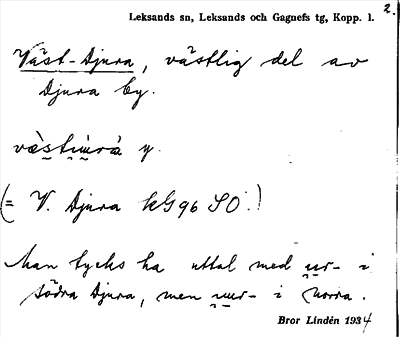 Leksands sn, Leksands och Gagnefs tg, Kopp. l. 2.
Väst-Djura, västlig del av
Djura by.
y.
(= V. Djura kG96 SO.)
Man tycks ha uttal med ur- i
södra Djura, men uur- i norra.
Bror Lindén 1934